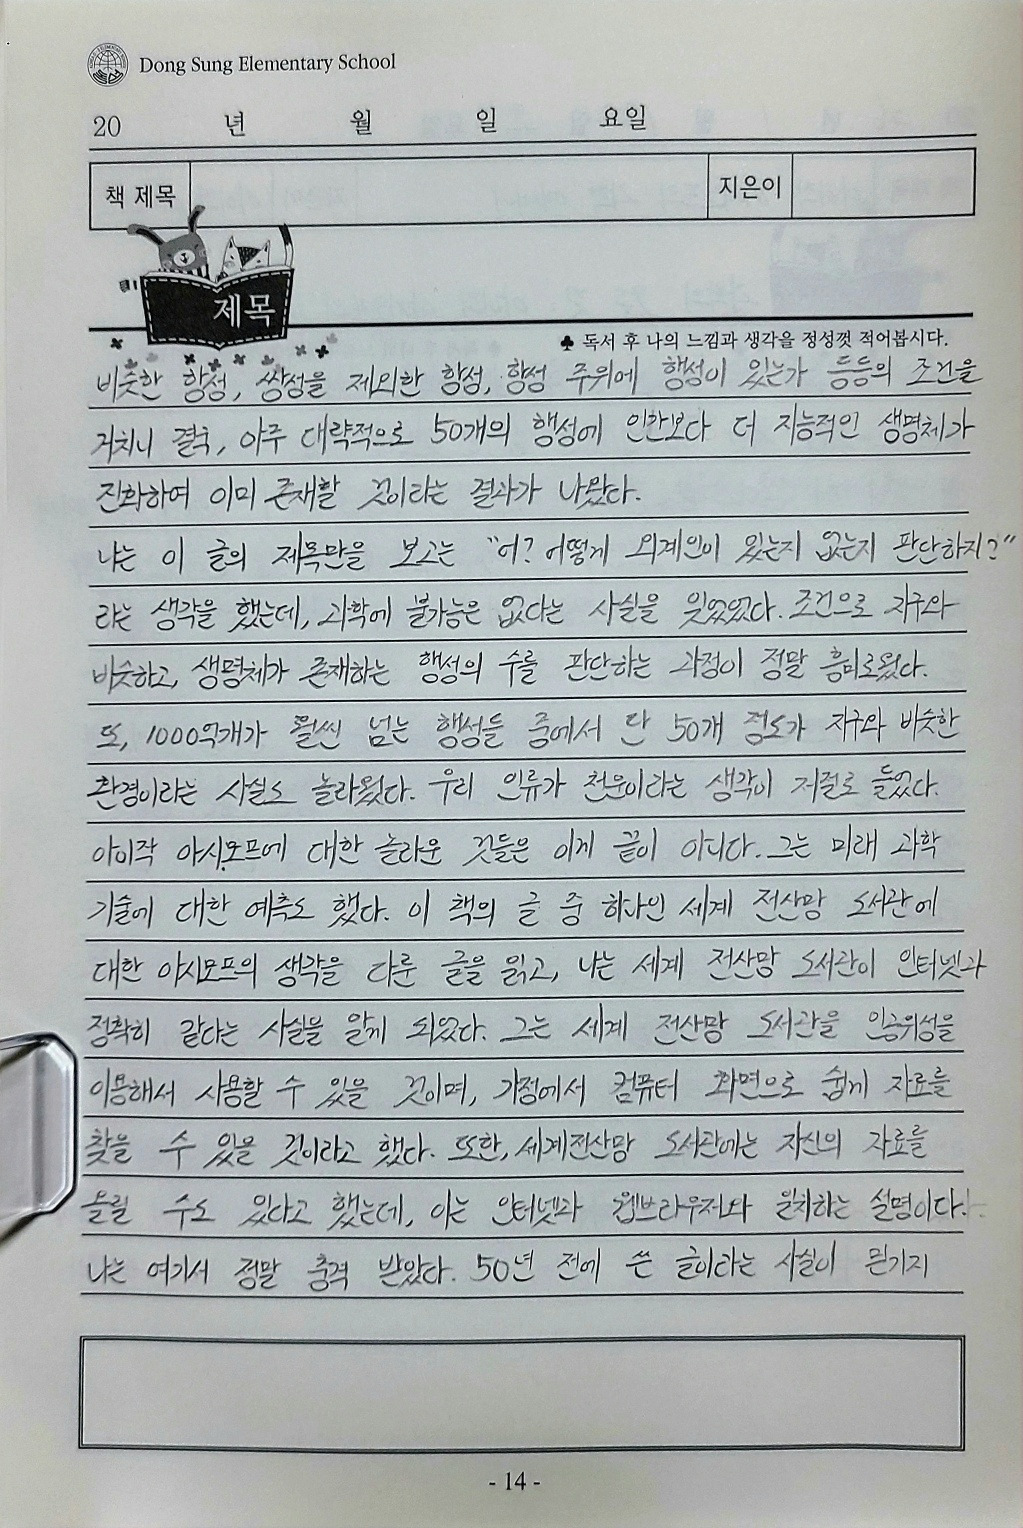 Dong Sung Elementary School
20 년 월 일 요일
책 제목 지은이
제목
♣ 독서 후 나의 느낌과 생각을 정성껏 적어봅시다.
비슷한 항성, 쌍성을 제외한 항성, 항성 주위에 행성이 있는가 등등의 조건을
거치니 결국, 아주 대략적으로 50개의 행성에 인간보다 더 지능적인 생명체가
진화하여 이미 존재할 것이라는 결과가 나왔다.
나는 이 글의 제목만을 보고는 "어? 어떻게 외계인이 있는지 없는지 판단하지?"
라는 생각을 했는데, 과학에 불가능은 없다는 사실을 잊었었다. 조건으로 지구와
비슷하고, 생명체가 존재하는 행성의 수를 판단하는 과정이 정말 흥미로웠다.
또, 1000억개가 훨씬 넘는 행성들 중에서 단 50개 정도가 지구와 비슷한
환경이라는 사실도 놀라웠다. 우리 인류가 천운이라는 생각이 저절로 들었다.
아이작 아시모프에 대한 놀라운 것들은 이게 끝이 아니다. 그는 미래 과학
기술에 대한 예측도 했다. 이 책의 글 중 하나인 세계 전산망 도서관에
대한 아시모프의 생각을 다룬 글을 읽고, 나는 세계 전산망 도서관이 인터넷과
정확히 같다는 사실을 알게 되었다. 그는 세계 전산망 도서관을 인공위성을
이용해서 사용할 수 있을 것이며, 가정에서 컴퓨터 화면으로 쉽게 자료를
찾을 수 있을 것이라고 했다. 또한, 세계전산망 도서관에는 자신의 자료를
올릴 수도 있다고 했는데, 이는 인터넷과 웹브라우저와 일치하는 설명이다.
나는 여기서 정말 충격 받았다. 50년 전에 쓴 글이라는 사실이 믿기지
- 14 -